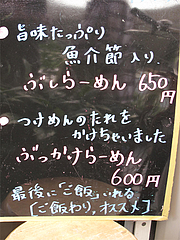 旨味たっぷり
魚介節入り
ぶしらーめん 650円
つけめんのたれを
かけちゃいました
ぶっかけらーめん
600円
最後に「ご飯」いれる
「ご飯わり,オススメ」